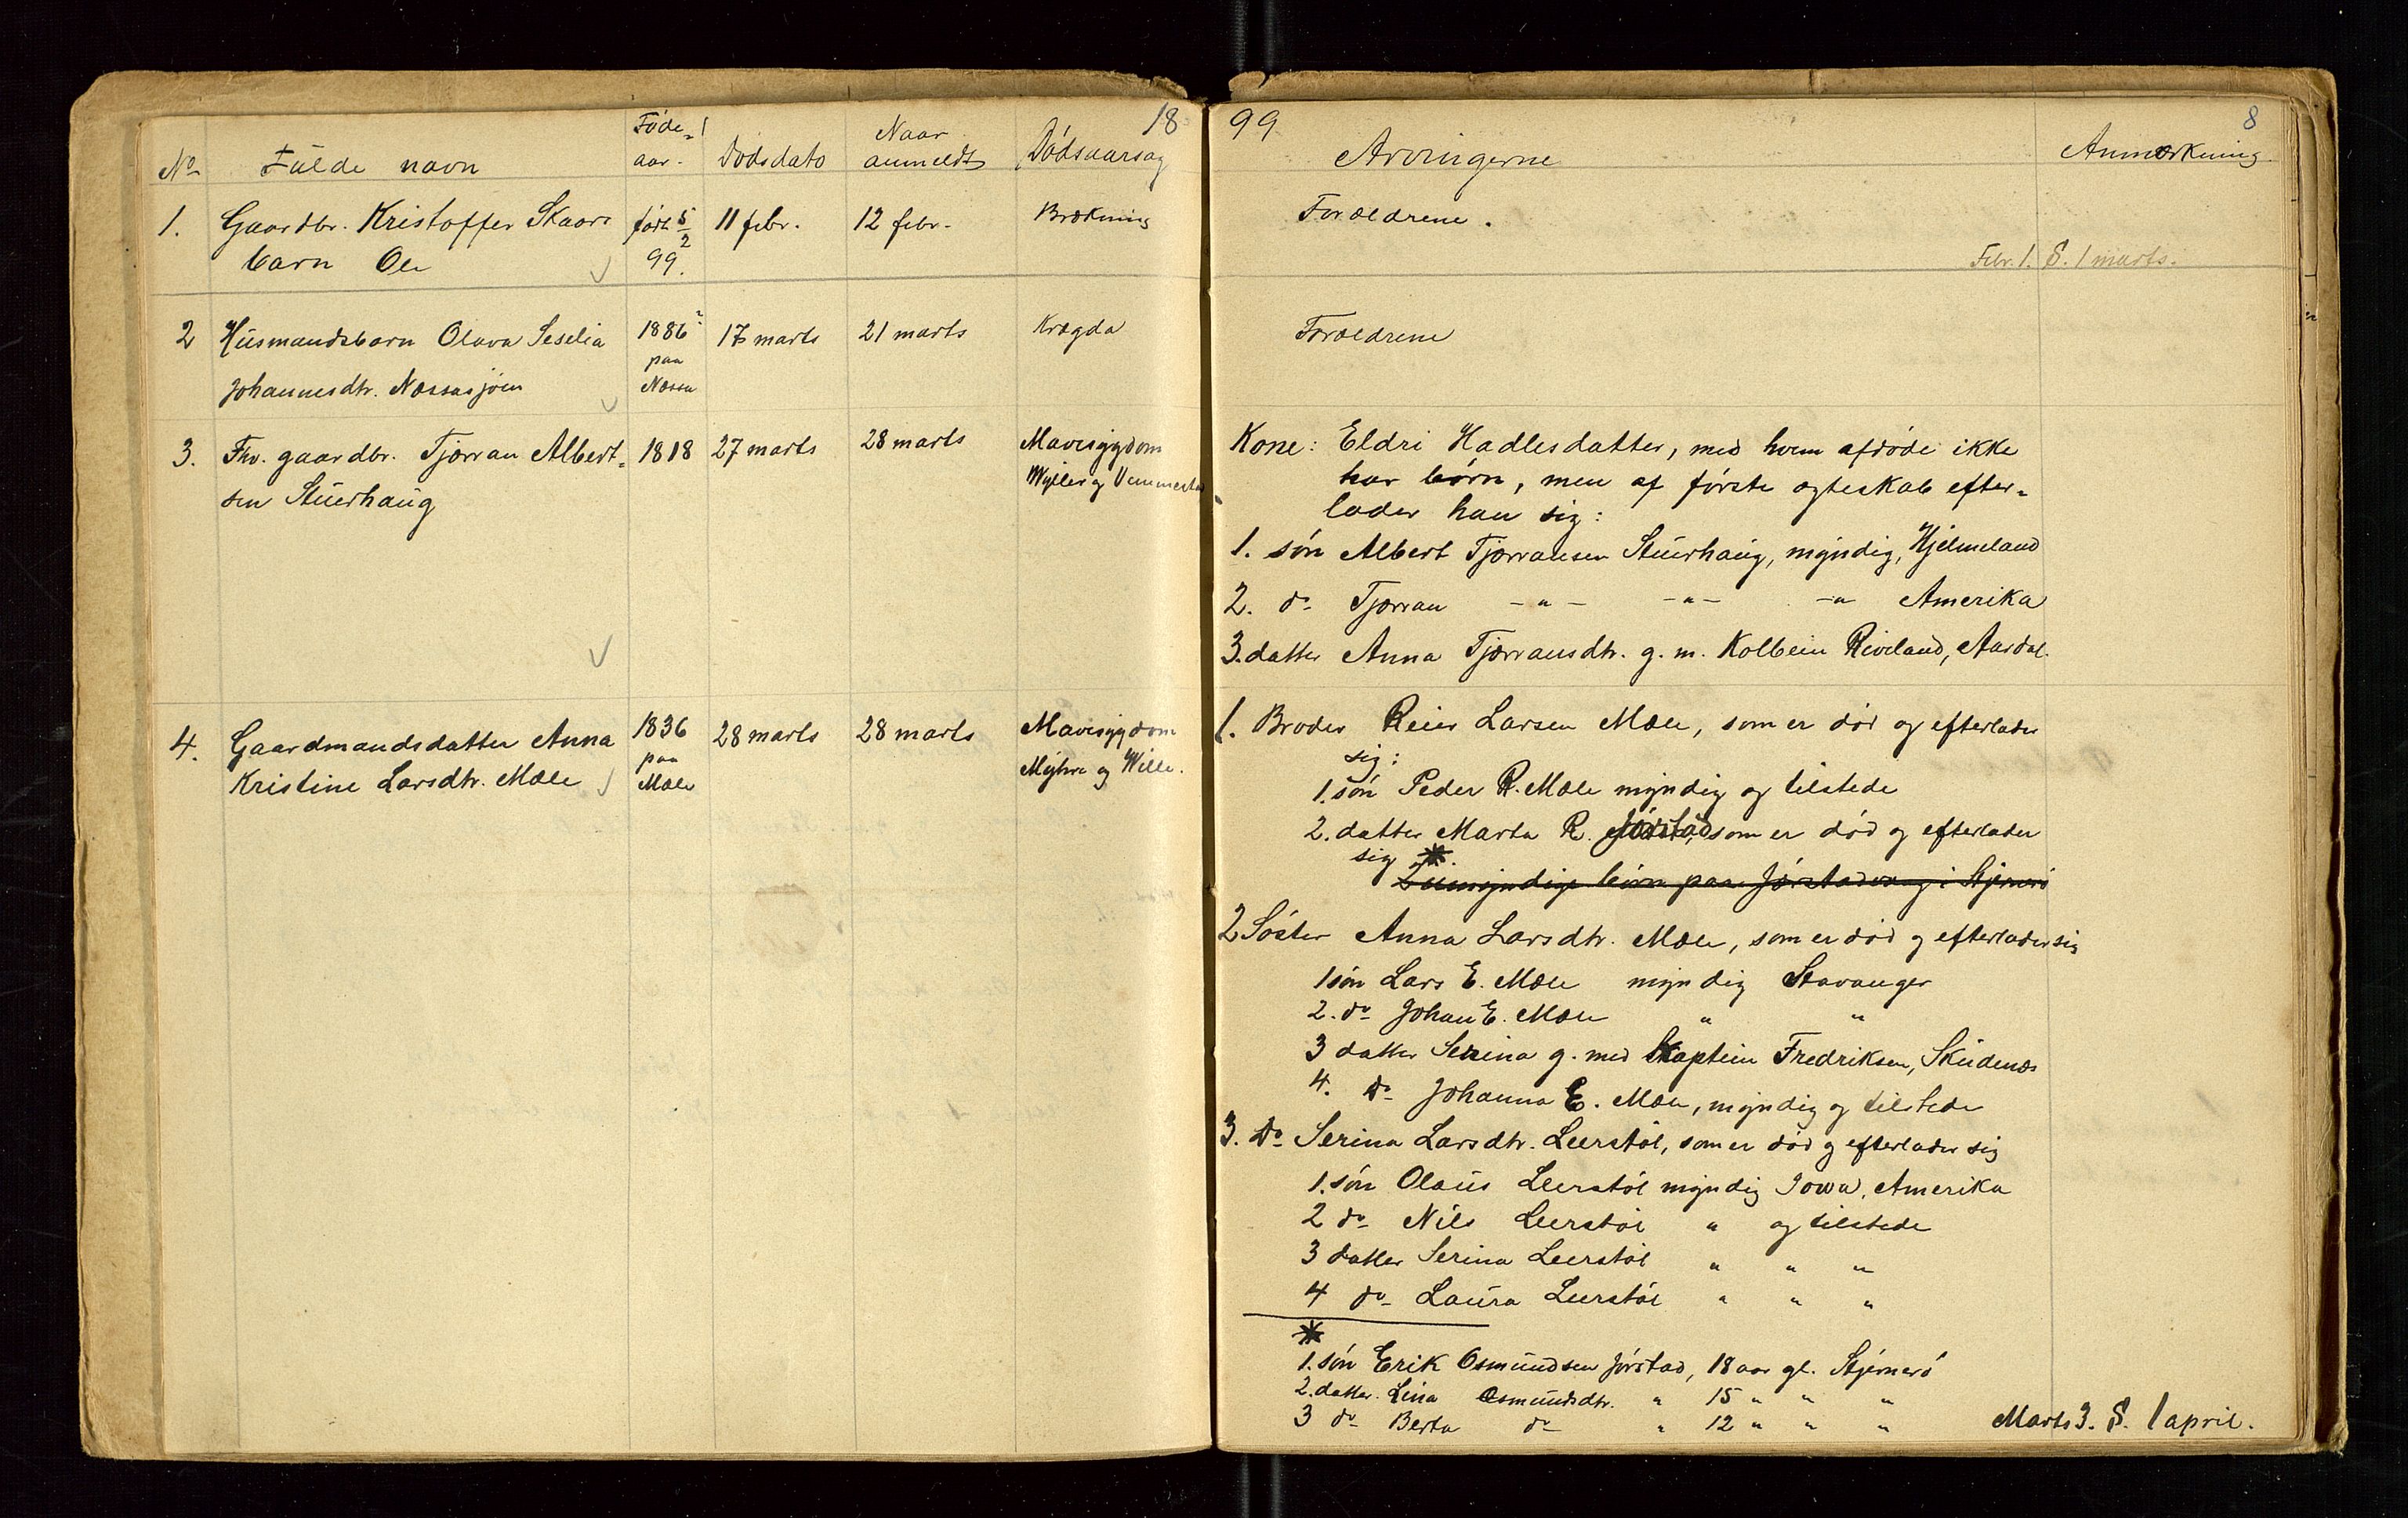 18
No Fulde navn Føde-aar. Dødsdato Naar anmeldt Dødsaarsag
1. Gaardbr. Kristoffer Skaars født 5/2 11 febr. 12 febr. Brækning
barn Ole 99.
2 Husmandsbarn Olava Seselia 1886? 17 marts 21 marts Krægda
paa
Johannesdtr. Næssasjøen Næssa
3. Fhv. gaardbr. Tjærran Albert- 1818 27 marts 28 marts Mavesygdom
sen Stuerhaug Wyller og Vemmestad
4. Gaardmandsdatter Anna 1836 28 marts 28 marts Mavesygdom
paa
Kristine Larsdtr. Mæle Mæle Myhre og Wille.
99 8
Arvingerne Anmærkning.
Forældrene.
Febr. 1. S. 1 marts.
Forældrene
Kone: Eldri Hadlesdatter, med hvem afdøde ikke
har børn, men af første ægteskab efter-
lader han sig:
1. søn Albert Tjærransen Stuerhaug, myndig, Hjelmeland
2. do Tjærran -"- -"- -" Amerika
3. datter Anna Tjærransdtr. g. m. Kolbein Riveland, Aardal.
1. Broder Reier Larsen Mæle, som er død og efterlader
sig:
1. søn Peder R. Mæle myndig og tilstede
2. datter Marta R. Jørstad, som er død og efterlader
sig *
umyndige børn paa Jørstadvaag i Stjernerø
2 Søster Anna Larsdtr. Mæle, som er død og efterlader sig
1 søn Lars E. Mæle myndig Stavanger
2. do Johan E. Mæle " "
3 datter Serina g. med Kaptein Fredriksen, Skudenæs
4. do Johanna E. Mæle, myndig og tilstede
3. do Serina Larsdtr. Leerstøl, som er død og efterlader sig
1. søn Olaus Leerstøl myndig Iowa, Amerika
2 do Nils Leerstøl " og tilstede
3 datter Serina Leerstøl " " "
4 do Laura Leerstøl " " "
*
1. søn Erik Osmundsen Jørstad, 18 aar gl. Stjernerø
2. datter. Lina Osmundsdtr. " 15 " " "
3 do Berta do " 12 " " "
Marts 3. S. 1 april.